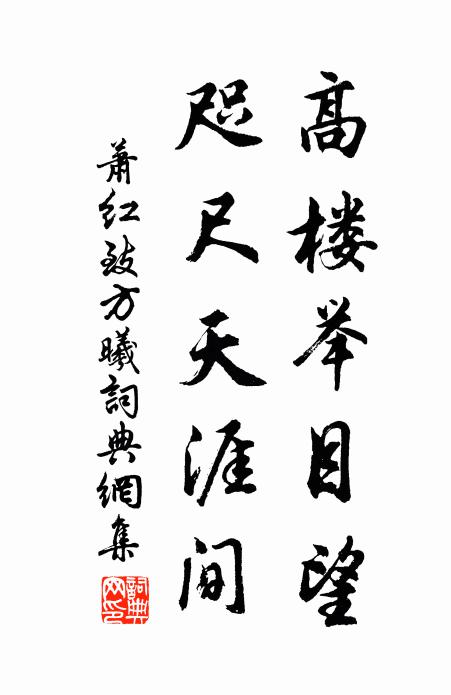 高楼举目望
咫尺天涯间
萧红致方曦詞典網集
詞典网印